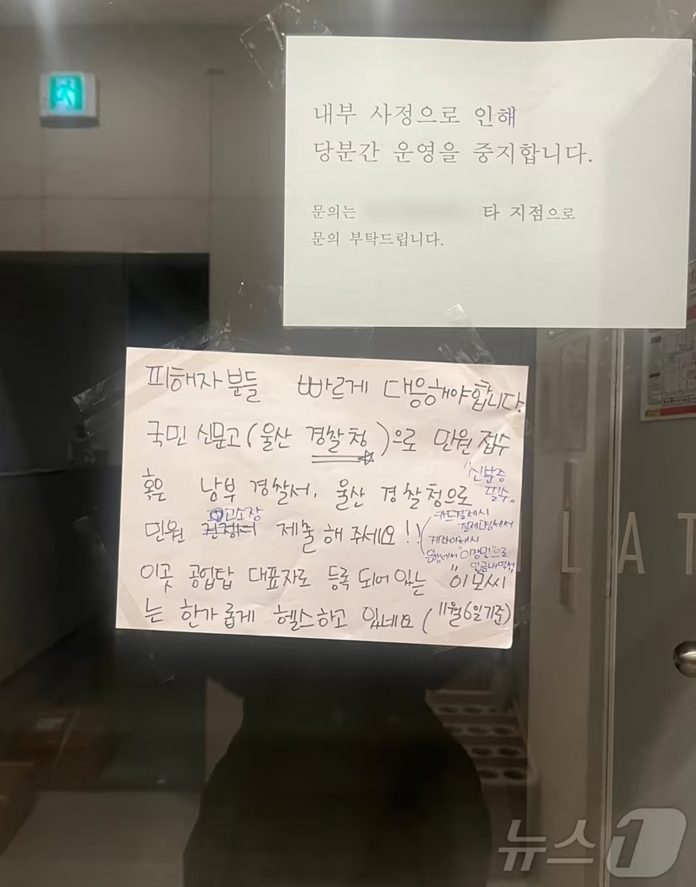 내부 사정으로 인해
당분간 운영을 중지합니다.
문의는 타 지점으로
문의 부탁드립니다.
피해자분들 빠르게 대응해야합니다.
국민 신문고(울산 경찰청)으로 민원 접수
혹은 남부 경찰서, 울산 경찰청으로 "신분증 필수"
민원 고소장 제출해 주세요!!
(카드결제시
결제내역서
계좌이체시
으로
입금내역
이곳 공입탑 대표자로 등록 되어 있는 "이모씨
는 한가롭게 헬스하고 있네요 (11월6일기준)
LAT
뉴스1